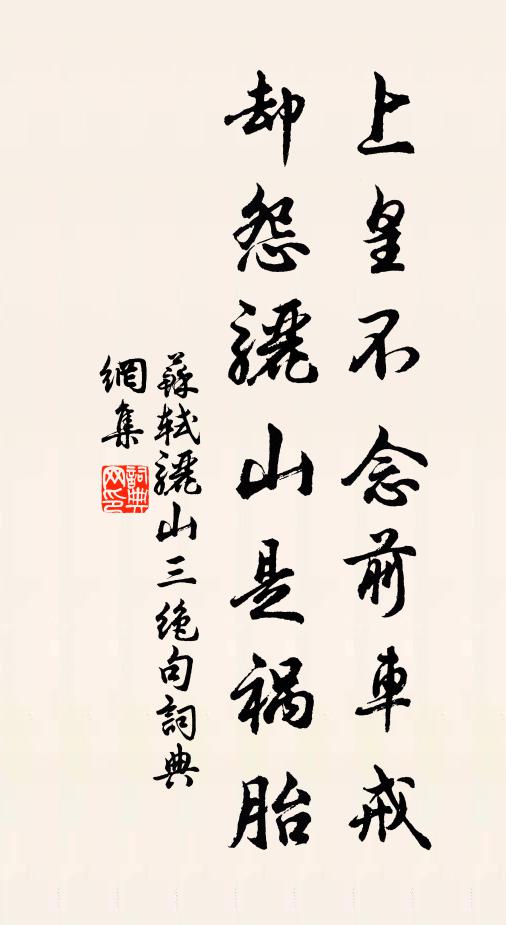 上皇不念前車戒
却怨驪山是禍胎
蘇軾驪山三絶句詞典
網集
詞典
网印